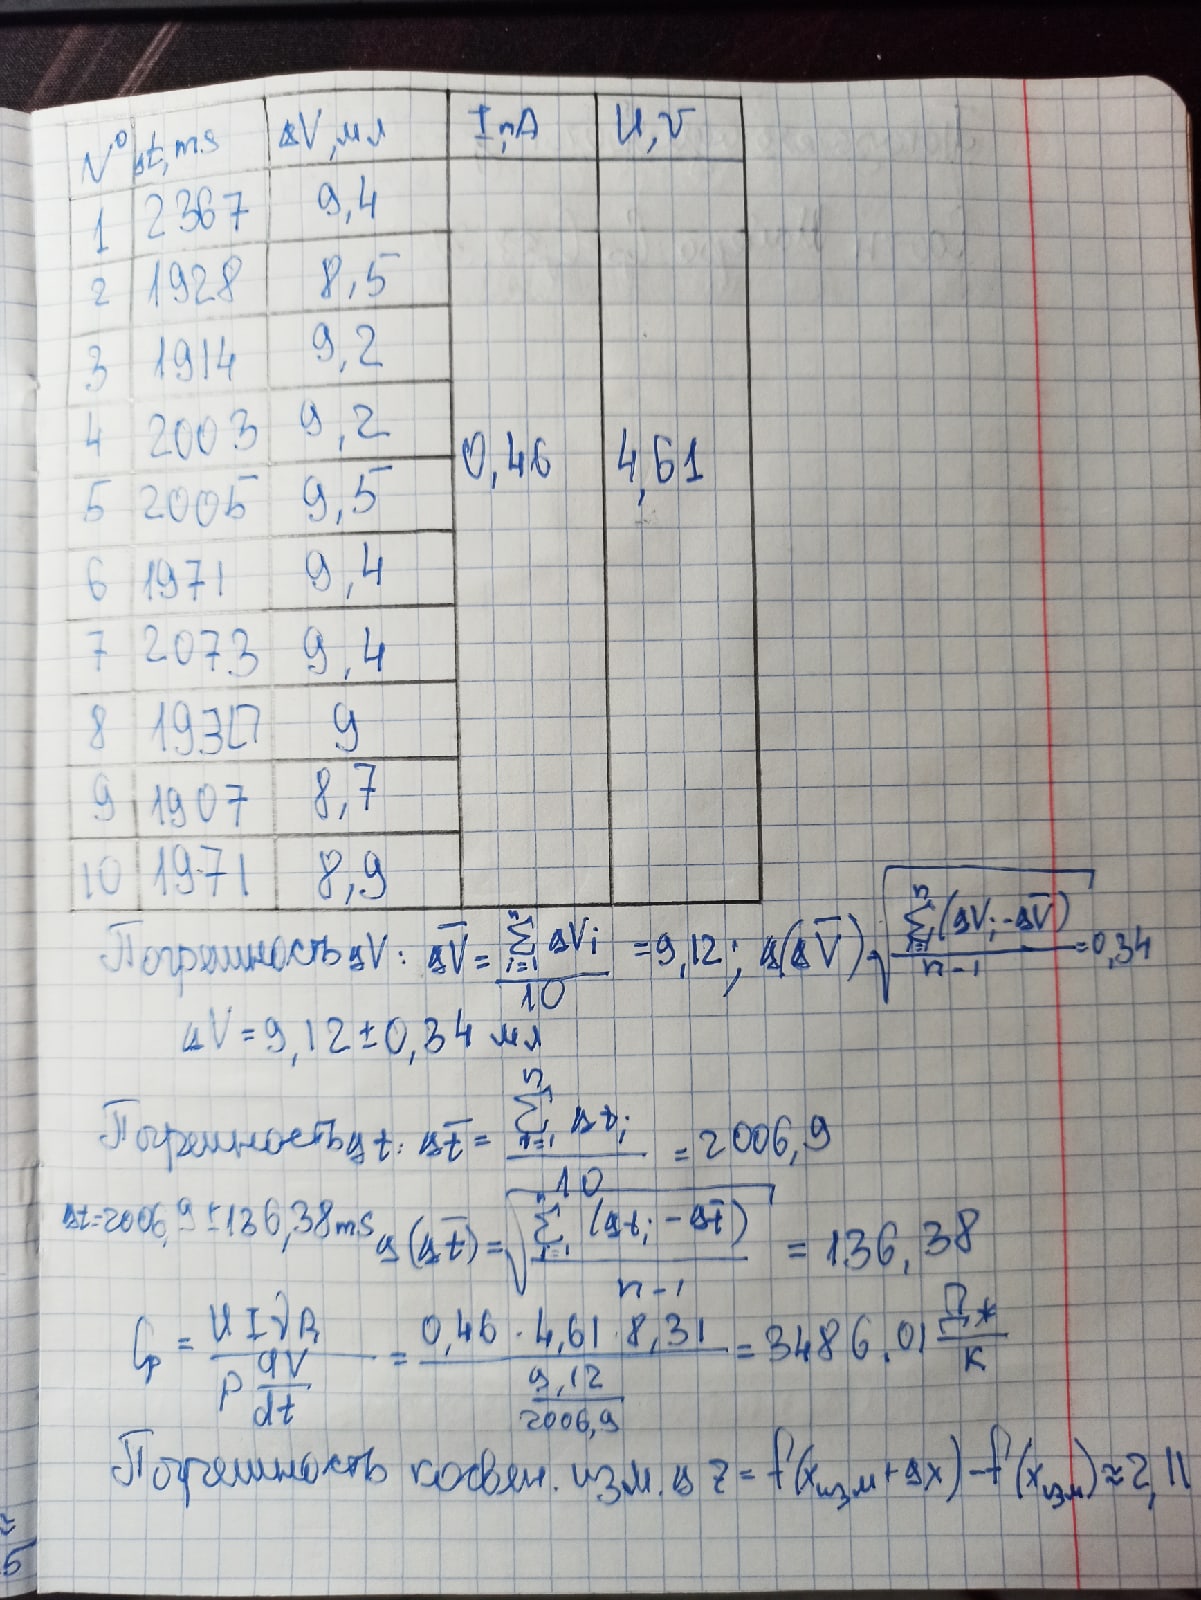 N° Δt, ms ΔV, мл I, A U, V
1 2367 9,4
2 1928 8,5
3 1914 9,2
4 2003 9,2
5 2005 9,5
0,46 4,61
6 1971 9,4
7 2073 9,4
8 1930 9
9 1907 8,7
10 1971 8,9
Погрешность ΔV: ΔV̅ = ∑ᵢ₌₁ⁿ ΔVᵢ / 10 = 9,12; Δ(ΔV̅) √(∑ᵢ₌₁ⁿ (ΔVᵢ - ΔV̅) / n-1) = 0,34
ΔV = 9,12 ± 0,34 мл
Погрешность Δt: Δt̅ = ∑ᵢ₌₁ⁿ Δtᵢ / 10 = 2006,9
Δt = 2006,9 ± 136,38 ms Δ(Δt̅) = √(∑ᵢ₌₁ⁿ (Δtᵢ - Δt̅) / n-1) = 136,38
Cp = UIνR / P dV/dt = 0,46 · 4,61 · 8,31 / 9,12/2006,9 = 3486,01 Дж/К
Погрешность косвен. изм. Δz = f(xизм + Δx) - f(xизм) ≈ 2,11